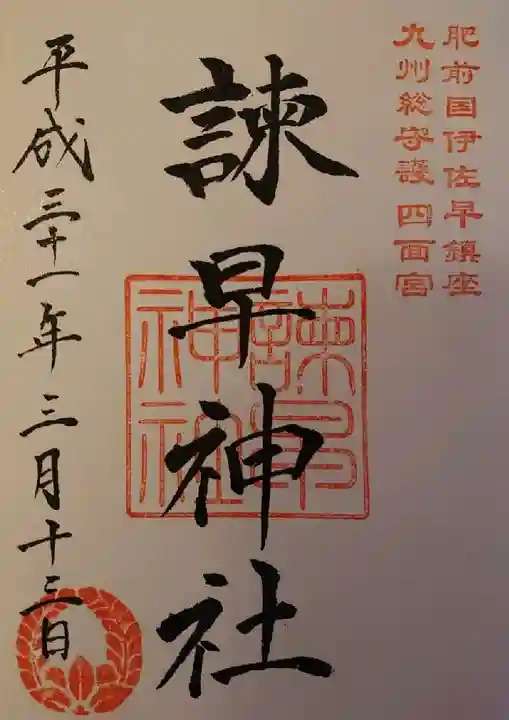 肥前国伊佐早鎮座
九州総守護 四面宮
諫早神社
諫早
神社
平成三十一年三月十三日